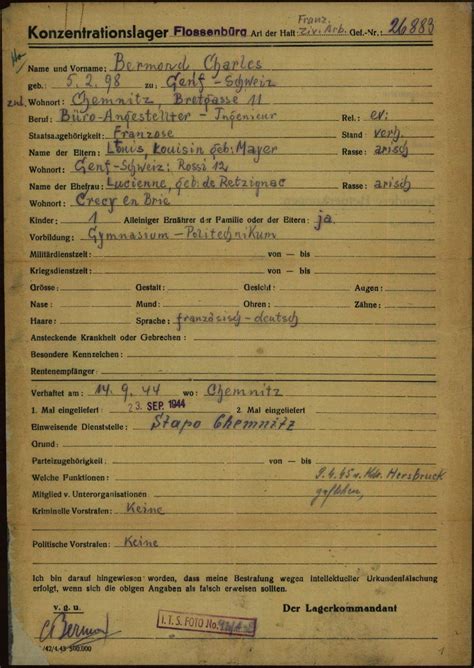 Franz.
Konzentrationslager Flossenbürg Art der Haft: Ziv. Arb. Gef.-Nr.: 26883
Name und Vorname: Bermond Charles
geb.: 5.2.98 zu: Genf - Schweiz
Wohnort: Chemnitz, Bretgasse 11
Beruf: Büro-Angestellter - Ingenieur Rel.: ev.
Staatsangehörigkeit: Franzose Stand: verh.
Name der Eltern: Louis, Louisin geb: Mayer Rasse: arisch
Wohnort: Genf-Schweiz; Rossi 12
Name der Ehefrau: Lucienne, geb: de Retzignac Rasse: arisch
Wohnort: Crecy en Brie
Kinder: 1 Alleiniger Ernährer der Familie oder der Eltern: ja.
Vorbildung: Gymnasium - Politechnikum
Militärdienstzeit: von — bis
Kriegsdienstzeit: von — bis
Grösse: Gestalt: Gesicht: Augen:
Nase: Mund: Ohren: Zähne:
Haare: Sprache: französisch - deutsch
Ansteckende Krankheit oder Gebrechen:
Besondere Kennzeichen:
Rentenempfänger:
Verhaftet am: 14.9.44 wo: Chemnitz
1. Mal eingeliefert 23. SEP. 1944 2. Mal eingeliefert
Einweisende Dienststelle: Stapo Chemnitz
Grund:
Parteizugehörigkeit: von — bis
Welche Funktionen: 9.4.45 v. Kdo. Hersbruck
Mitglied v. Unterorganisationen geflohen,
Kriminelle Vorstrafen: Keine
Politische Vorstrafen: Keine
Ich bin darauf hingewiesen worden, dass meine Bestrafung wegen intellektueller Urkundenfälschung
erfolgt, wenn sich die obigen Angaben als falsch erweisen sollten.
v. g. u. Der Lagerkommandant
C. Bermond
I.T.S. FOTO No.
/42/4.43 500.000
1